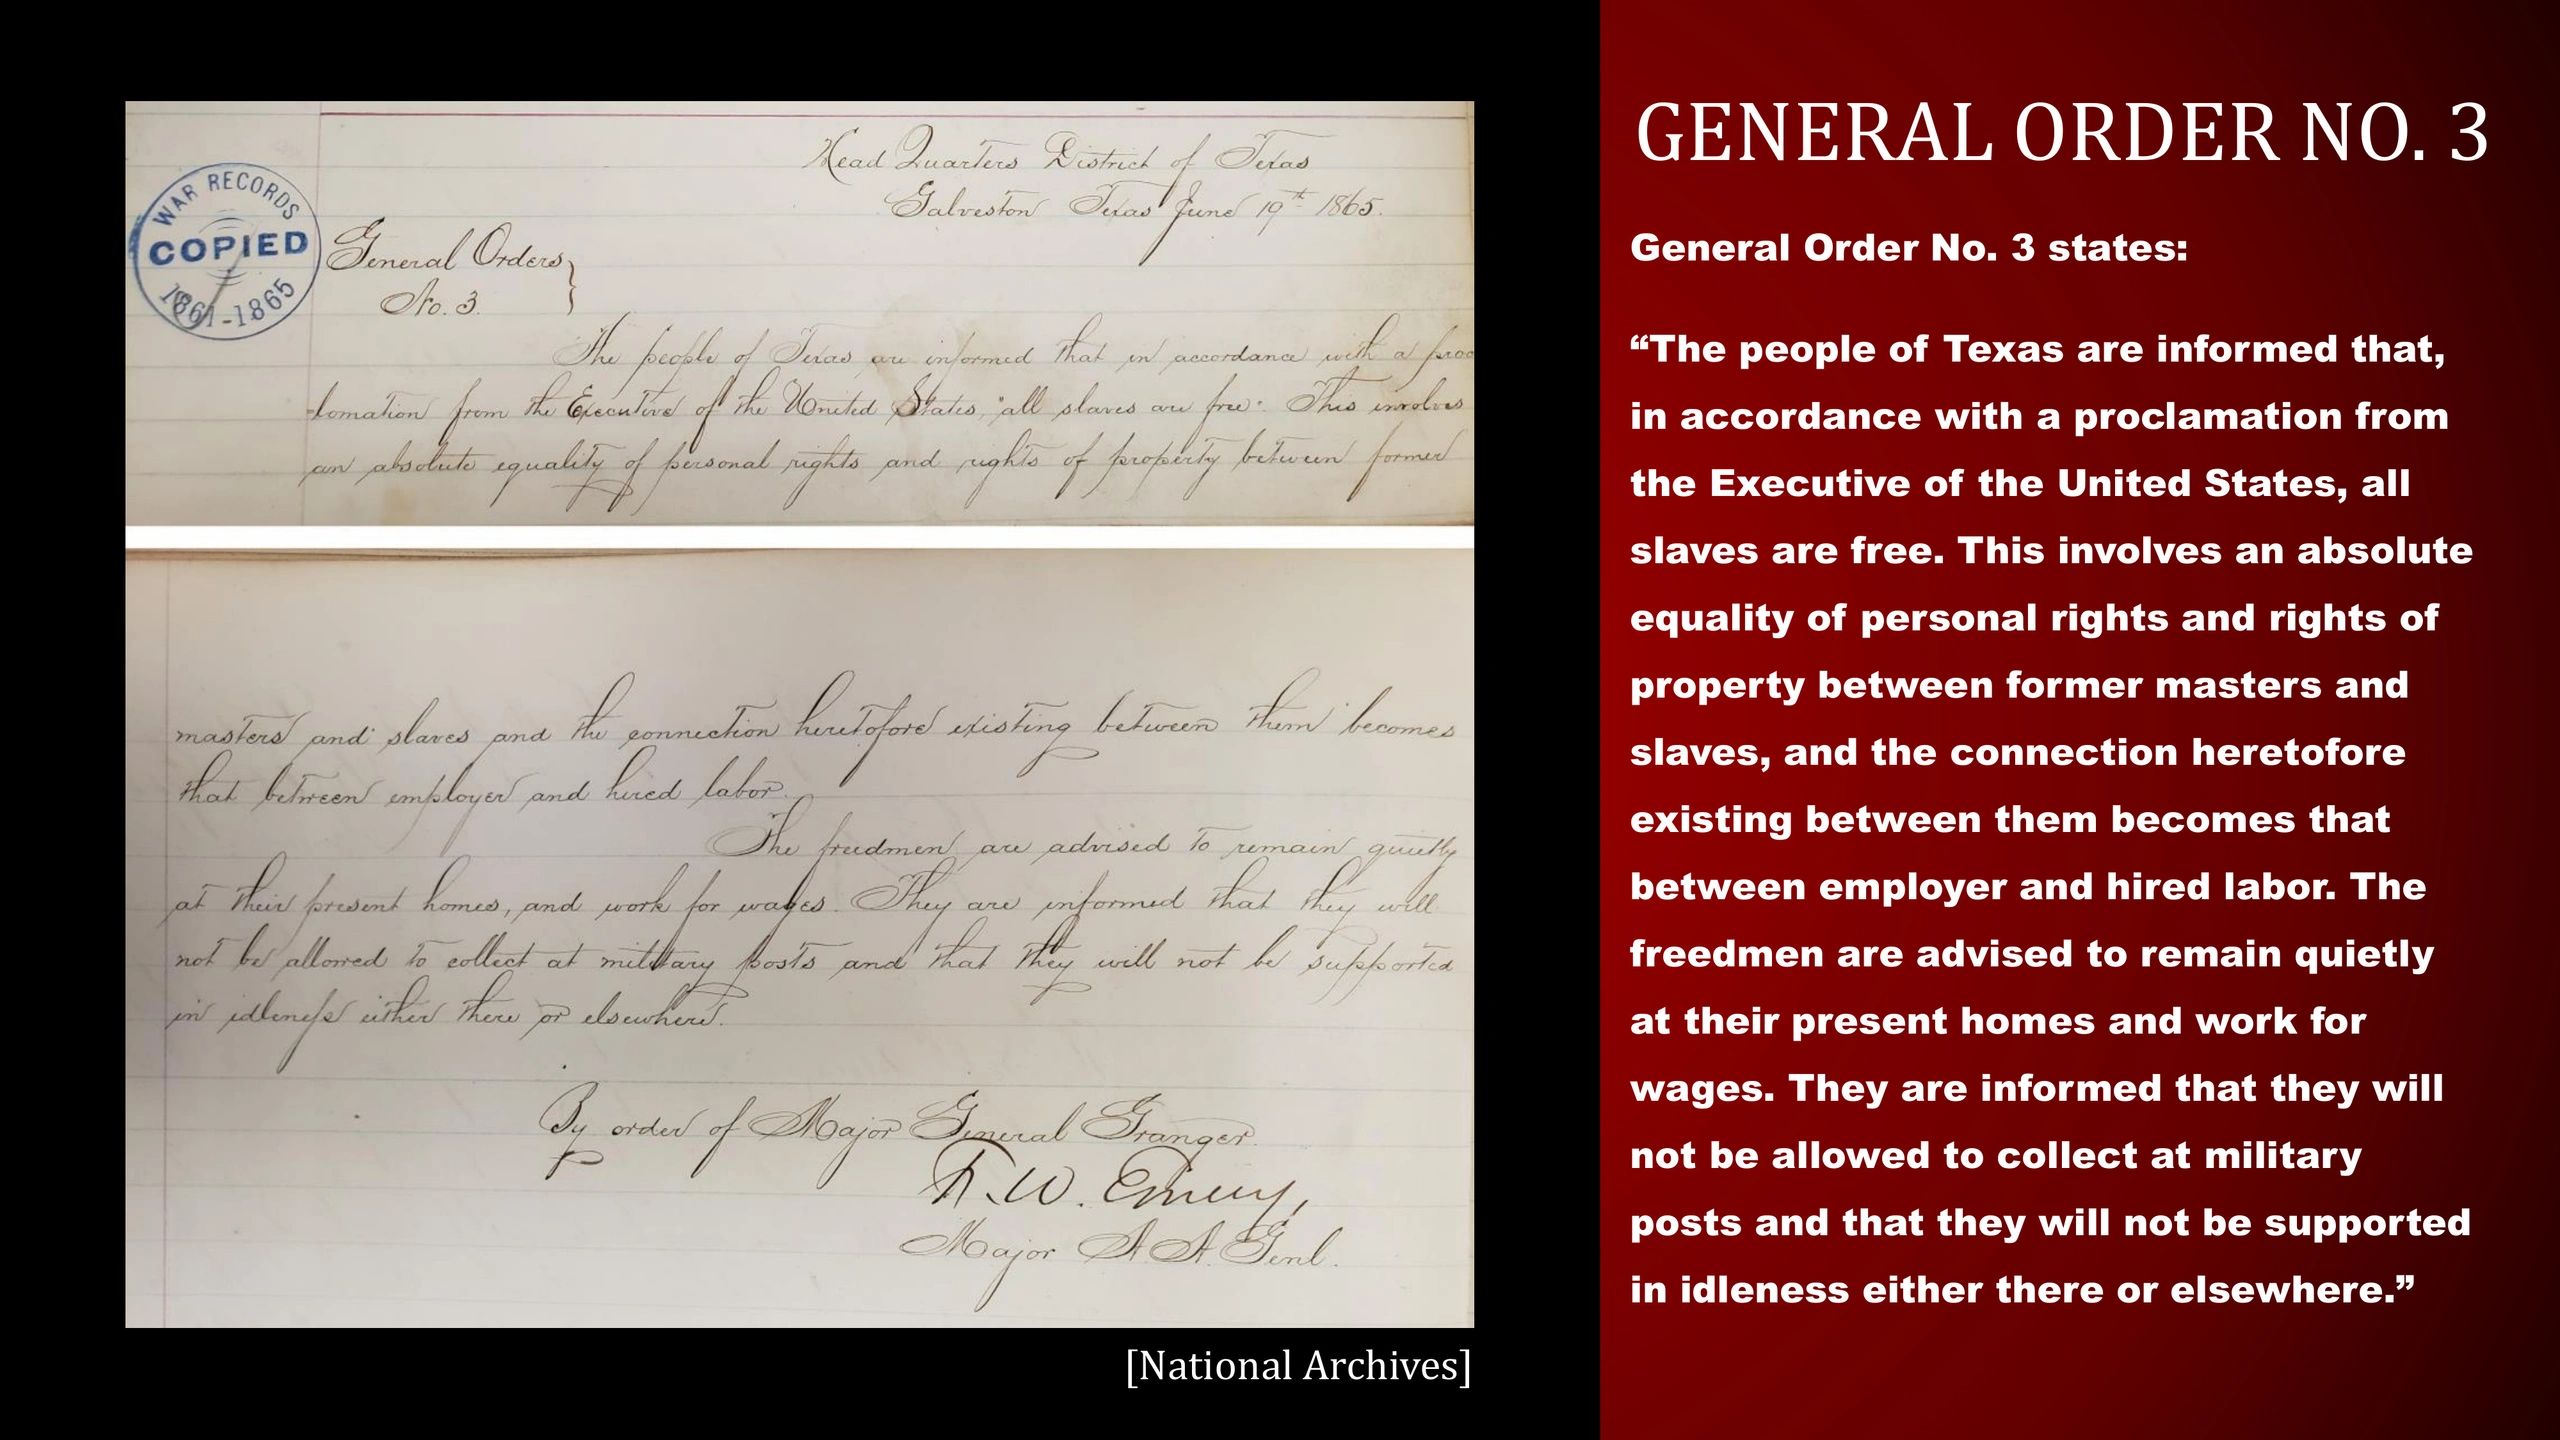 WAR RECORDS
COPIED
1861-1865
Head Quarters District of Texas
Galveston Texas June 19th 1865.
General Orders
No. 3.
The people of Texas are informed that in accordance with a proc
lamation from the Executive of the United States, "all slaves are free". This involves
an absolute equality of personal rights and rights of property between former
masters and slaves and the connection heretofore existing between them becomes
that between employer and hired labor.
The freedmen are advised to remain quietly
at their present homes, and work for wages. They are informed that they will
not be allowed to collect at military posts and that they will not be supported
in idleness either there or elsewhere.
By order of Major General Granger
F. W. Emery,
Major A. A. Genl.
[National Archives]
GENERAL ORDER NO. 3
General Order No. 3 states:
“The people of Texas are informed that,
in accordance with a proclamation from
the Executive of the United States, all
slaves are free. This involves an absolute
equality of personal rights and rights of
property between former masters and
slaves, and the connection heretofore
existing between them becomes that
between employer and hired labor. The
freedmen are advised to remain quietly
at their present homes and work for
wages. They are informed that they will
not be allowed to collect at military
posts and that they will not be supported
in idleness either there or elsewhere.”